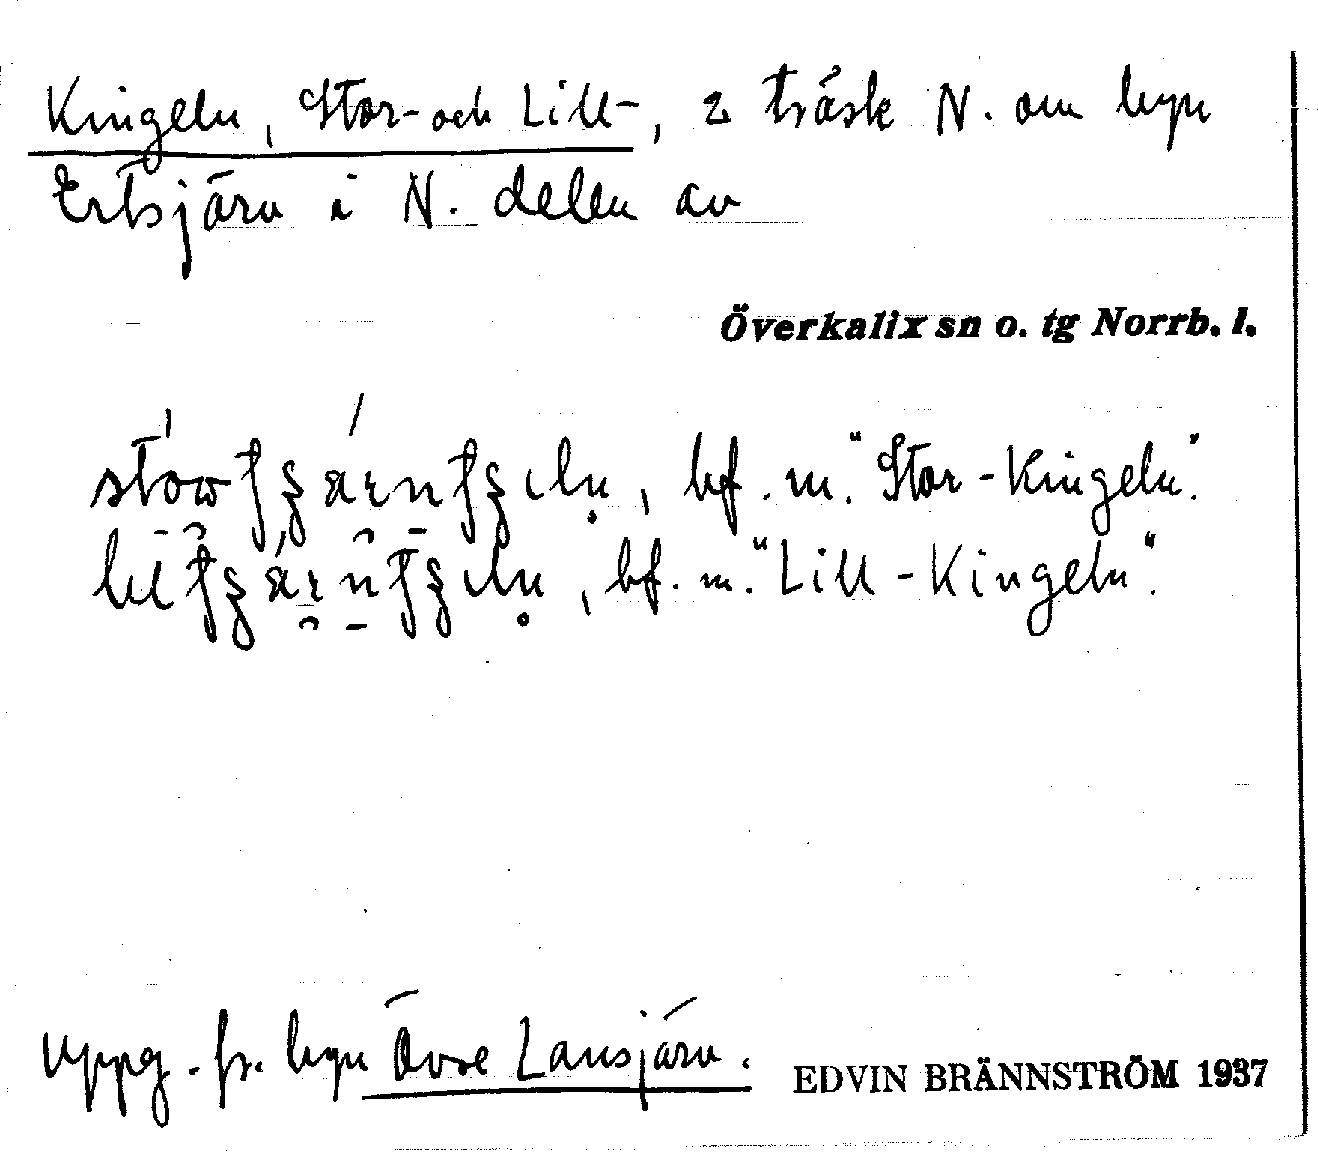 Kingeln, Stor- och Lill-, 2 träsk N. om byn
Ertsjärv i N. delen av
Överkalix sn o. tg Norrb. l.
bf. m. "Stor-Kingeln".
bf. m. "Lill-Kingeln".
Uppg. fr. byn Övre Lansjärv.
EDVIN BRÄNNSTRÖM 1937